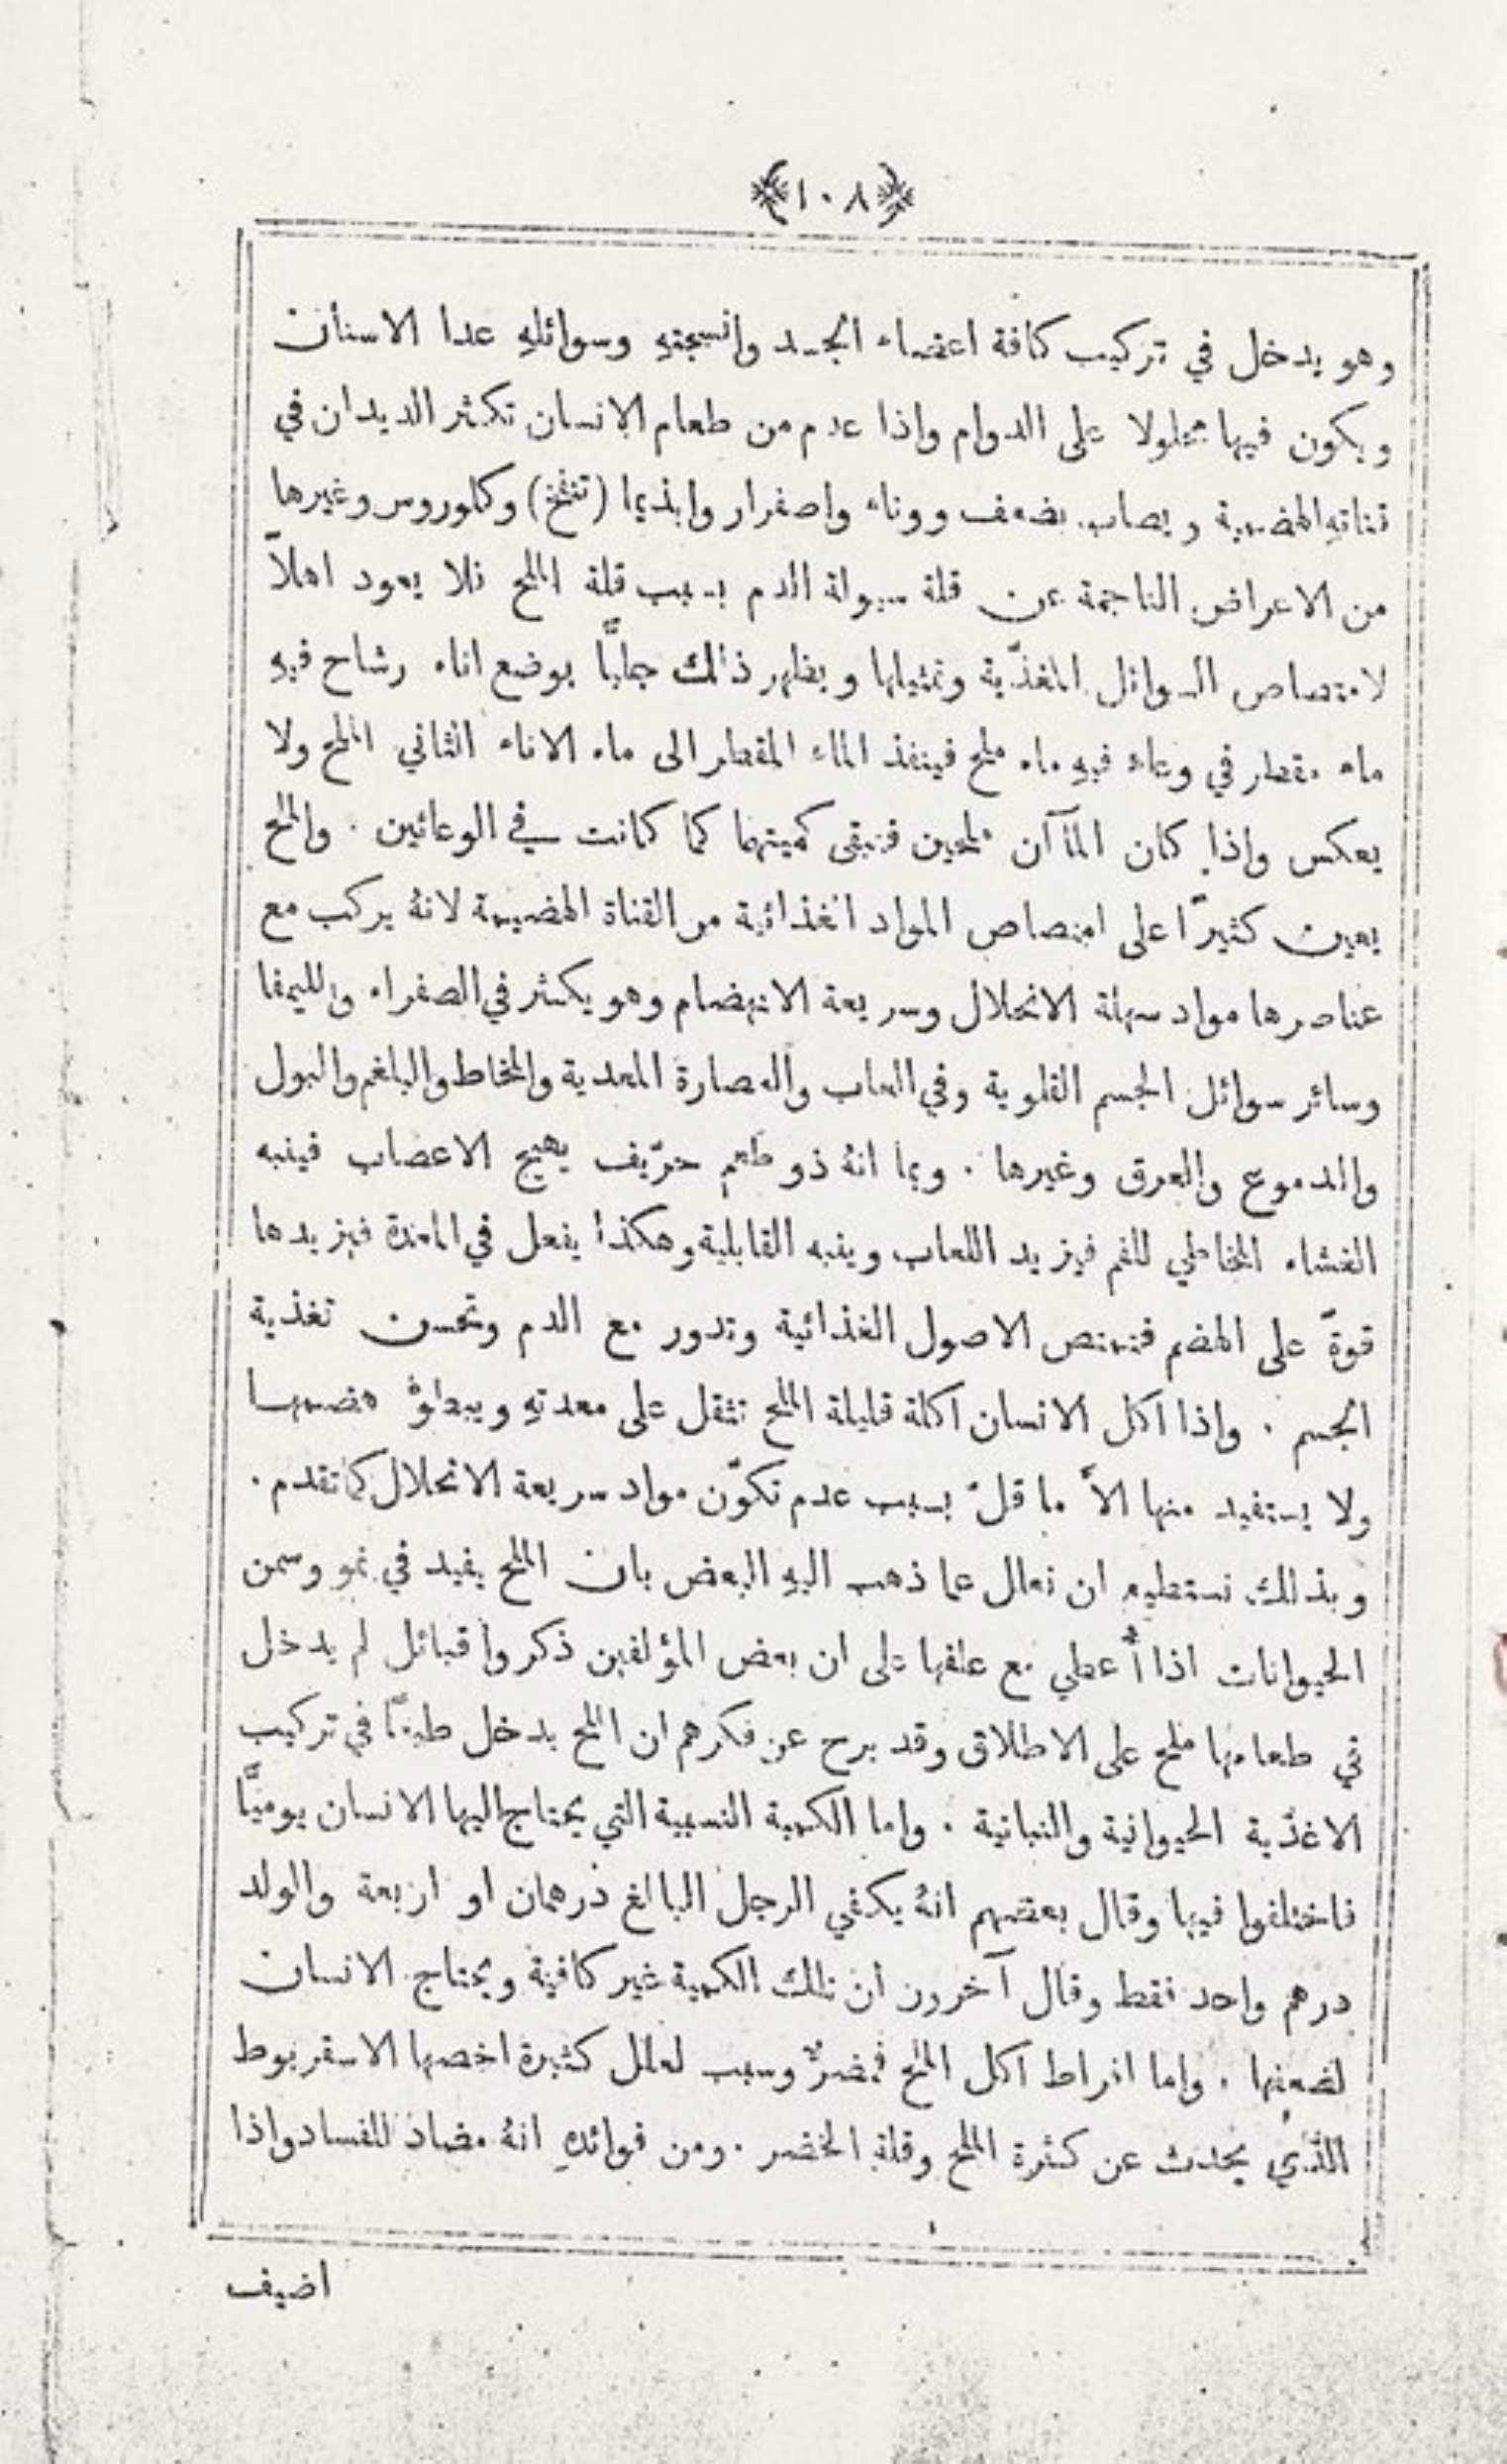 ﴿١٠٨﴾
وهو يدخل في تركيب كافة اعضاء الجسد وانسجتهِ وسوائلهِ عدا الاسنان
ويكون فيها محلولا على الدوام واذا عدم من طعام الانسان تكثر الديدان في
قناتهِ الهضمية ويصاب بضعف وونَاء واصفرار وايذيما (تنفخ) وكلوروس وغيرها
من الاعراض الناجمة عن قلة سيولة الدم بسبب قلة الملح فلا يعود اهلاً
لامتصاص السوائل المغذّية وتمثيلها ويظهر ذالك جليًّا بوضع اناء رشاح فيهِ
ماء مقطر في وعاء فيهِ ماء ملح فينفذ الماء المقطر الى ماء الاناء الثاني الملح ولا
يعكس واذا كان المآآن ملحين فتبقى كميتهما كما كانت في الوعائين . والملح
يعين كثيرًا على امتصاص المواد الغذائية من القناة الهضيمة لانهُ يركب مع
عناصرها مواد سهلة الانحلال وسريعة الانهضام وهو يكثر في الصفراء والليمفا
وسائر سوائل الجسم القلوية وفي اللعاب والعصارة المعدية والمخاط والبلغم والبول
والدموع والعرق وغيرها . وبما انهُ ذو طعم حرّيف يهيج الاعصاب فينبه
الغشاء المخاطي للفم فيزيد اللعاب وينبه القابلية وهكذا يفعل في المعدة فيزيدها
قوةً على الهضم فتمتص الاصول الغذائية وتدور مع الدم وتحسن تغذية
الجسم . واذا اكل الانسان اكلة قليلة الملح تثقل على معدتهِ ويبطؤُ هضمها
ولا يستفيد منها الاَّ ما قلّ بسبب عدم تكوّن مواد سريعة الانحلال كما تقدم .
وبذلك نستطيع ان نعلل عما ذهب اليهِ البعض بان الملح يفيد في نمو وسمن
الحيوانات اذا أُعطي مع علفها على ان بعض المؤلفين ذكروا قبائل لم يدخل
في طعامها ملح على الاطلاق وقد برح عن فكرهم ان الملح يدخل طبعًا في تركيب
الاغذية الحيوانية والنباتية . واما الكمية النسبية التي يحتاج اليها الانسان يوميًّا
فاختلفوا فيها وقال بعضهم انهُ يكفي الرجل البالغ درهمان او اربعة والولد
درهم واحد فقط وقال آخرون ان تلك الكمية غير كافية ويحتاج الانسان
لضعفها . واما افراط اكل الملح فمضرٌّ وسبب لعلل كثيرة اخصها الاسقربوط
الذي يحدث عن كثرة الملح وقلة الخضر . ومن فوائدهِ انهُ مضاد للفساد واذا
اضيف